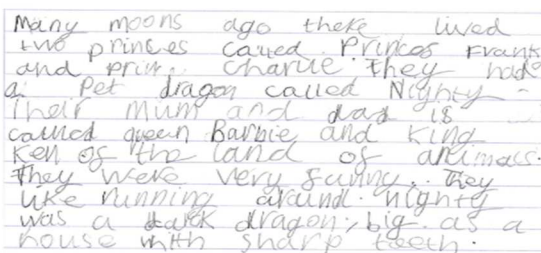 Many moons ago there lived
two princes called Princes Frank
and prin.. Charlie. They had
a pet dragon called Nighty
Their mum and dad is
called queen Barbie and King
Ken of the land of animals.
They were very funny.. They
like running around. nighty
was a dark dragon, big as a
house with sharp teeth.